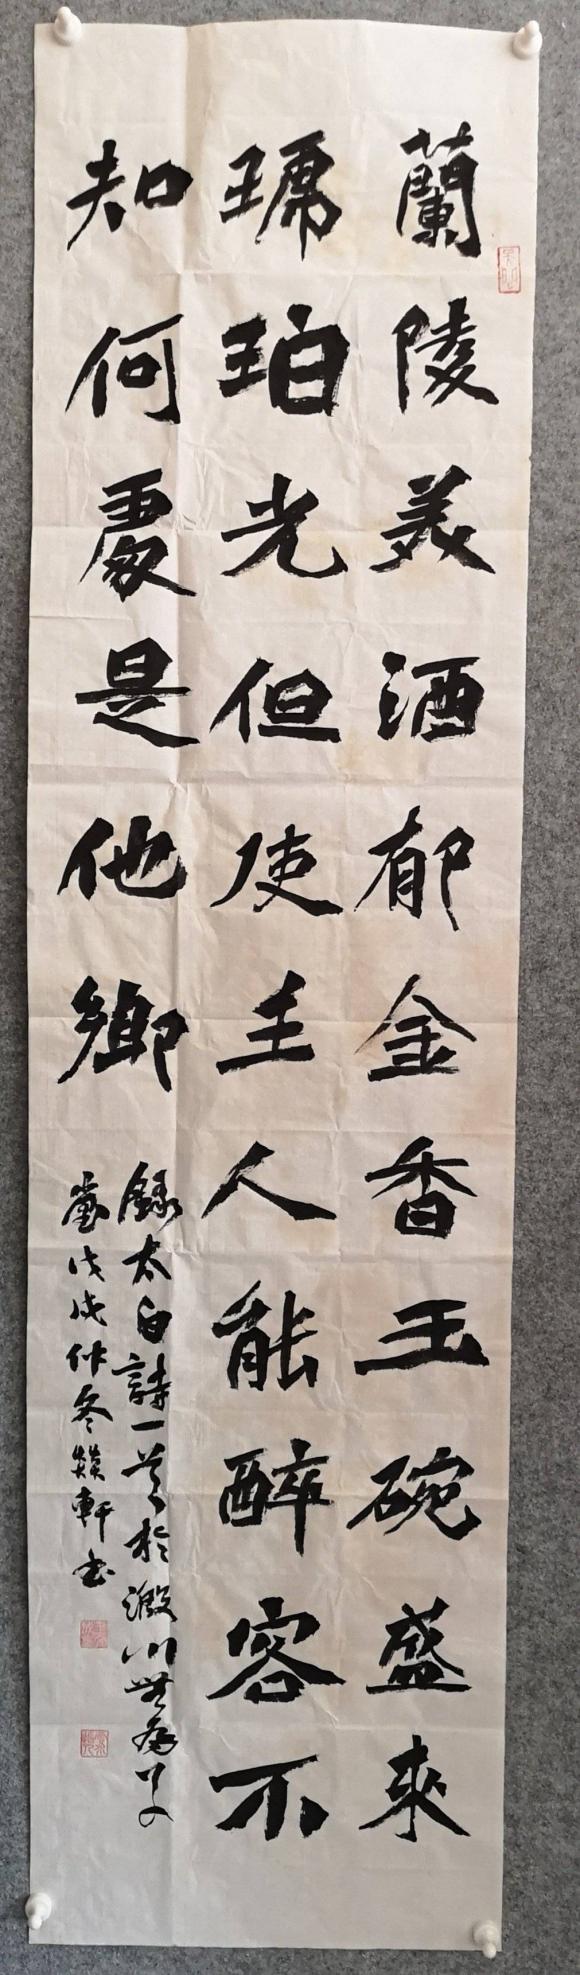 蘭陵美酒郁金香玉碗盛来
琥珀光但使主人能醉容不
知何處是他鄉
錄太白詩一首於澱川無為草
堂戊戌仲冬燚軒书